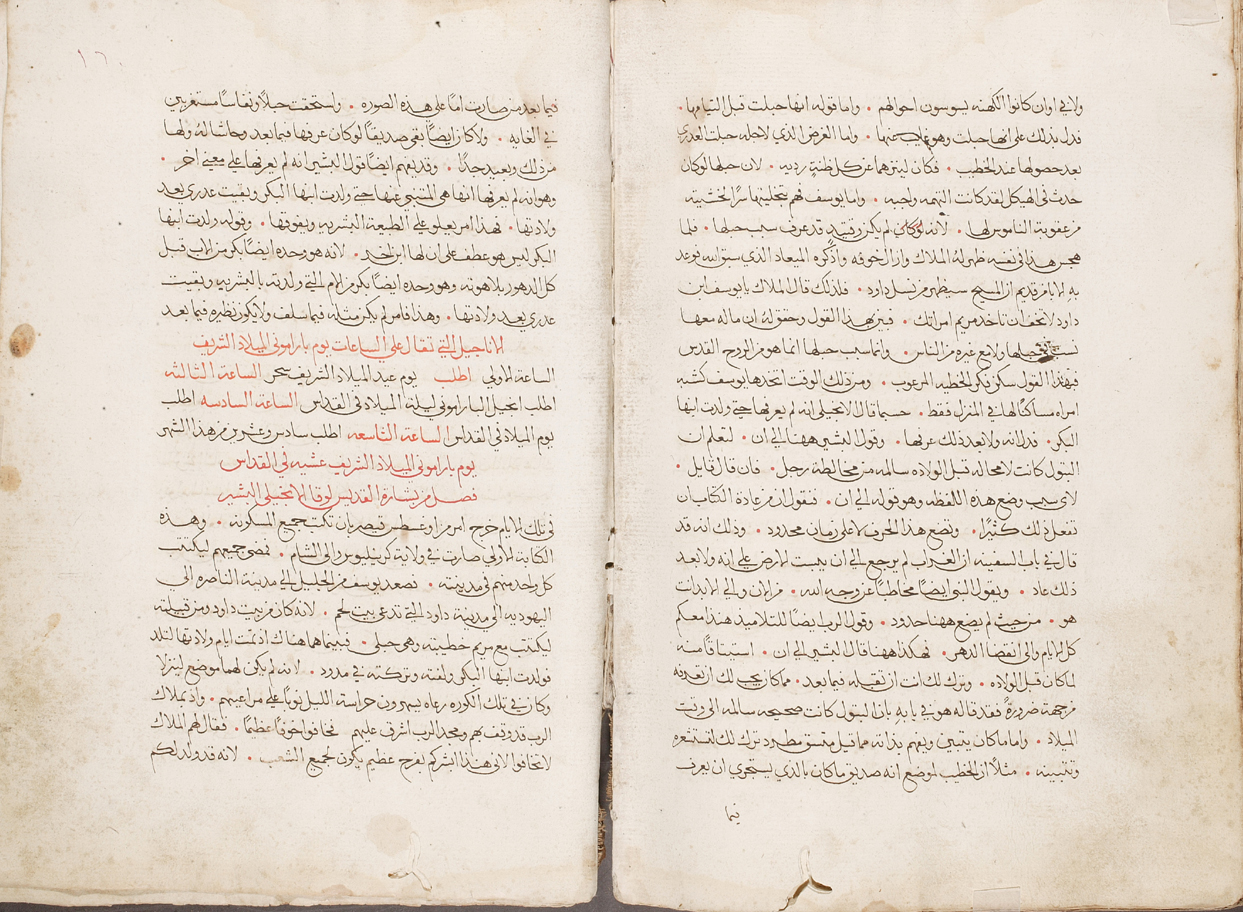 ولا في اوان كانوا الكهنه يسوسون احوالهم • واما قوله انها حبلت قبل التيامهما •
فدل بذلك على انها حبلت وهو عنها • واما الغرض الذي لاجله حبلت العدرى
بعد حصولها عند الخطيب • فكان لينزهها عن كل ظنة رديه • لان حبلها لو كان
حدث في الهيكل لقد كانت التهمه واجبه • واما يوسف فهم بتخليتها سرًا لخشيته
من عقوبة الناموس لها • لانه لم يكن وقتيذٍ قد عرف سبب حبلها • فلما
هجس هذا في نفسه ظهر له الملاك وازال خوفه واذكره الميعاد الذي سبق الله فوعد
به الابا من قديم ان المسيح سيظهر من نسل داود • فلذلك قال الملاك يا يوسف ابن
داود لا تخف ان تاخذ مريم امراتك • فبين بهذا القول وحقق له ان ماله معها
حبلها ولا مع غيره من الناس • وانما سبب حبلها انما هو من الروح القدس
فبهذا القول سكن فكر لخطيبه المرعوب • ومن ذلك الوقت اتخدها يوسف كشبه
امراه مساكنًا لها في المنزل فقط • حسبما قال الانجيلى انه لم يعرفها حتى ولدت ابنها
البكر • فدل انه ولا بعد ذلك عرفها • وقول البشير ههنا الى ان • لتعلم ان
البتول كانت لا محاله قبل الولاده سالمه من مخالطة رجل • فان قال قايل •
لاي سبب وضع هذه اللفظه وهو قوله الى ان • فنقول ان من عادة الكتاب ان
تفعل ذلك كثيرًا • وتضع هذا الحرف لا على زمان محدود • وذلك انه قد
قال في باب السفينه ان الغراب لم يرجع الى ان يبست الارض على انه ولا بعد
ذلك عاد • ويقول النبي ايضًا مخاطبًا عن وجه الله • من الان والى الابدات
هو • من حيث لم يضع ههنا حدود • وقول الرب ايضًا للتلاميد هنذا معكم
كل الايام والى انقضا الدهر • فهكذا ههنا قال البشير الى ان • استيثاقًا منه
لما كان قبل الولاده • وترك لك انت ان تقبله فيما بعد • مما كان يجب لك ان تعرفه
من جهة ضرورةً فقد قاله هو في بابه بان البتول كانت صحيحه سالمه الى وقت
الميلاد • واما ما كان يتبين ويفهم بذاته مما قيل ترك لك لتستشعره
وتتبينه • مثلًا ان الخطيب لموضع انه صديق ما كان بالذي يستجري ان يعرف
فيما
١٦٠
فيما بعد من صارت امًا على هذه الصوره • واستحقت حبلًا ونفاسًا مستغربين
في الغايه • ولا كان ايضًا بقى صديقًا لو كان عرفها فيما بعد وحاشا له ولها
من ذلك وبعيد جدًا • وقد يفهم ايضًا قول البشير انه لم يعرفها على معنى اخر •
وهو انه لم يعرفها انها هى المتنبى عنها حتى ولدت ابنها البكر وبقيت عدرى بعد
ولادتها • فهذا امر يعلو على الطبيعه البشريه ويفوقها • وقوله ولدت ابنها
البكر ليس هو عطف على ان لها ابن اخر • لانه هو وحده ايضًا بكر من الاب قبل
كل الدهور بلاهوته وهو وحده ايضًا بكر من الام التي ولدته بالبشريه وبقيت
عدرى بعد ولادتها • وهذا فامر لم يكن مثله فيما سلف ولا يكون نظيره فيما بعد
الاناجيل التي تقال على الساعات يوم بارامونى الميلاد الشريف
الساعه الاولي اطلب يوم عيد الميلاد الشريف سحر الساعة الثالثه
اطلب انجيل البارامونى ليلة الميلاد في القداس الساعة السادسه اطلب
يوم الميلاد في القداس الساعة التاسعه اطلب سادس وعشرين من هذا الشهر
يوم بارامونى الميلاد الشريف عشيه في القداس
فصل من بشارة القديس لوقا الانجيلى البشير
في تلك الايام خرج امر من اوغسطس قيصر بان تكتب جميع المسكونه • وهذه
الكتابه الاولى صارت في ولاية كرينليوس والى الشام • فمضى جميعهم ليكتتب
كل واحد منهم في مدينته • فصعد يوسف من الجليل الى مدينة الناصره الى
اليهوديه الى مدينة داود التي تدعى بيت لحم • لانه كان من بيت داود ومن قبيلته
ليكتتب مع مريم خطيبته وهي حبلى • فبينما هما هناك اذ تمت ايام ولادتها لتلد
فولدت ابنها البكر ولفته وتركته في مدود • لانه لم يكن لهما موضع لينزلا
وكان في تلك الكوره رعاه يسهرون حراسة الليل نوبًا على مراعيهم • واذ ملاك
الرب قد وقف بهم ومجد الرب اشرق عليهم فخافوا خوفًا عظيمًا • فقال لهم الملاك
لا تخافوا لانى هنذا ابشركم بفرح عظيم يكون لجميع الشعب • لانه قد ولد لكم